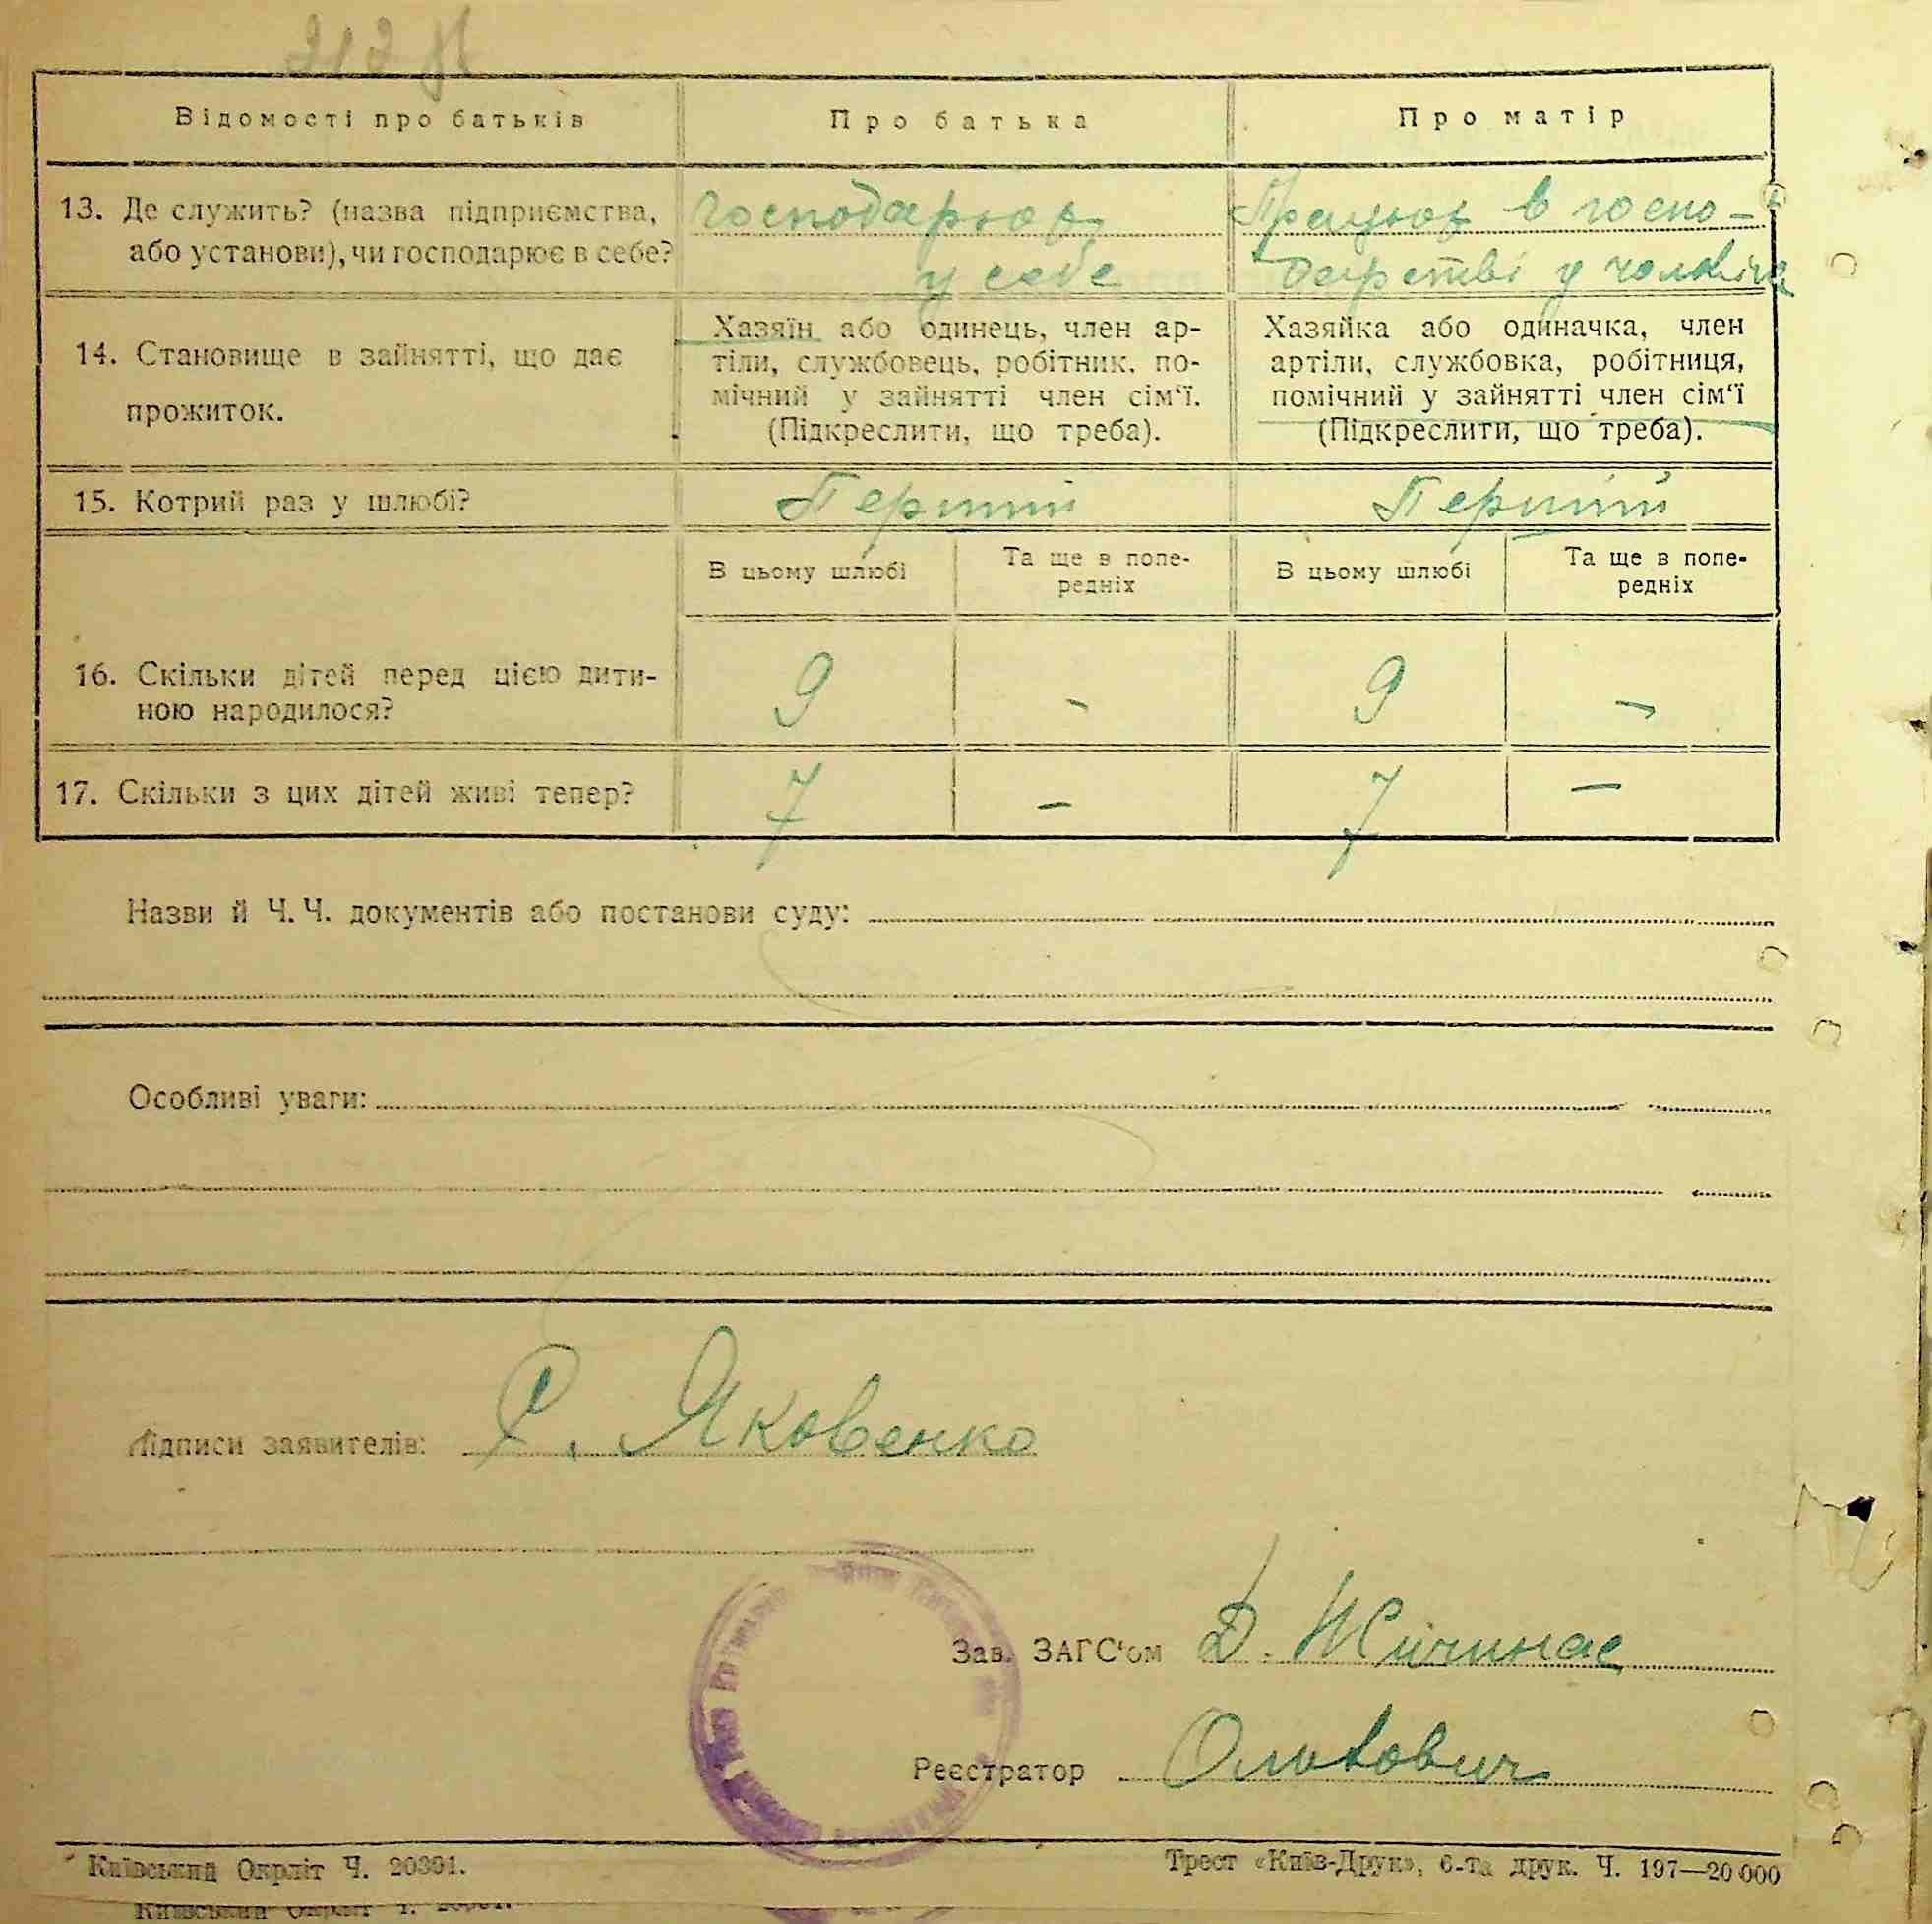 Відомості про батьків
Про батька
Про матір
13. Де служить? (назва підприємства, або установи), чи господарює в себе?
господарює
у себе
Працює в госпо-
дарстві у чоловіка
14. Становище в зайнятті, що дає
прожиток.
Хазяїн або одинець, член ар-
тіли, службовець, робітник, по-
мічний у зайнятті член сім‘ї.
(Підкреслити, що треба).
Хазяйка або одиначка, член
артіли, службовка, робітниця,
помічний у зайнятті член сім‘ї
(Підкреслити, що треба).
15. Котрий раз у шлюбі?
Перший
Перший
В цьому шлюбі
Та ще в попе-
редніх
В цьому шлюбі
Та ще в попе-
редніх
16. Скільки дітей перед цією дити-
ною народилося?
9
-
9
-
17. Скільки з цих дітей живі тепер?
7
-
7
-
Назви й Ч. Ч. документів або постанови суду:
Особливі уваги:
Підписи заявителів: Я. Яковенко
Зав. ЗАГС‘ом Д.
Реєстратор
Київський Окрліт Ч. 20391.
Трест «Київ-Друк», 6-та друк. Ч. 197—20 000